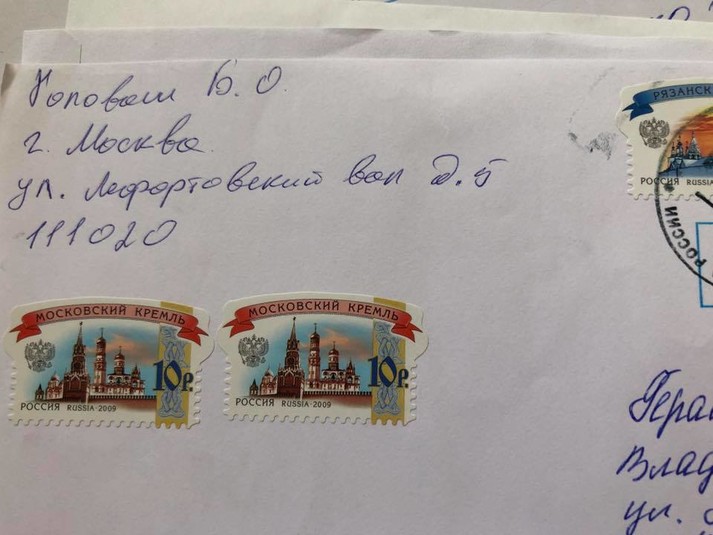 Б. О.
г. Москва
ул. Лефортовский вал д. 5
111020
РЯЗАНСК
РОССИЯ RUSSIA
РОССИИ
МОСКОВСКИЙ КРЕМЛЬ
10 Р.
РОССИЯ RUSSIA·2009
МОСКОВСКИЙ КРЕМЛЬ
10 Р.
РОССИЯ RUSSIA·2009
Гера
Влад
ул.